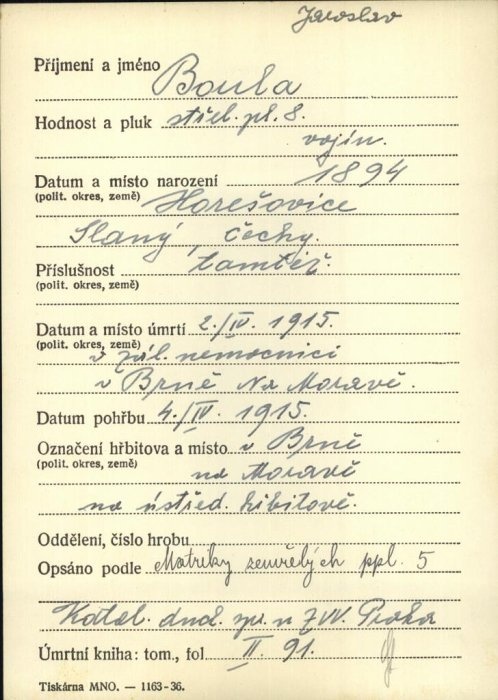 Jaroslav
Příjmení a jméno Boula
Hodnost a pluk střel. pl. 8.
vojín.
Datum a místo narození 1894
(polit. okres, země) Horešovice
Slaný, Čechy.
Příslušnost tamtéž.
(polit. okres, země)
Datum a místo úmrtí 2./IV. 1915.
(polit. okres, země) v zál. nemocnici
v Brně na Moravě.
Datum pohřbu 4./IV. 1915.
Označení hřbitova a místo v Brně
(polit. okres, země) na Moravě
na ústřed. hřbitově.
Oddělení, číslo hrobu
Opsáno podle Matriky zemřelých ppl. 5
Katol. duch. spr. u ZVV. Praha
Úmrtní kniha: tom., fol II. 91.
Tiskárna MNO. — 1163-36.